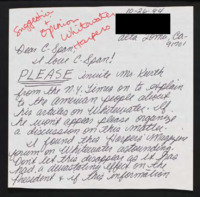 Suggestion
Opinion
Whitewater
Harpers
10-26-94
Alta Loma, Ca.
91701
Dear C Span,
I love C Span!
PLEASE invite Mr. Gerth
from the N.Y. Times on to explain
to the American people about
his articles on Whitewater. If
he wont appear please organize
a discussion on this matter.
I found this Harper's Magazine
forum on Whitewater astounding.
Dont let this disappear as it has
had a devastating effect on the
President & if this information